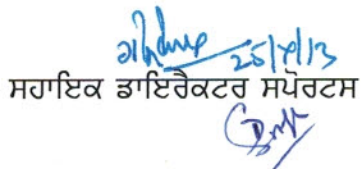 25/4/13
ਸਹਾਇਕ ਡਾਇਰੈਕਟਰ ਸਪੋਰਟਸ